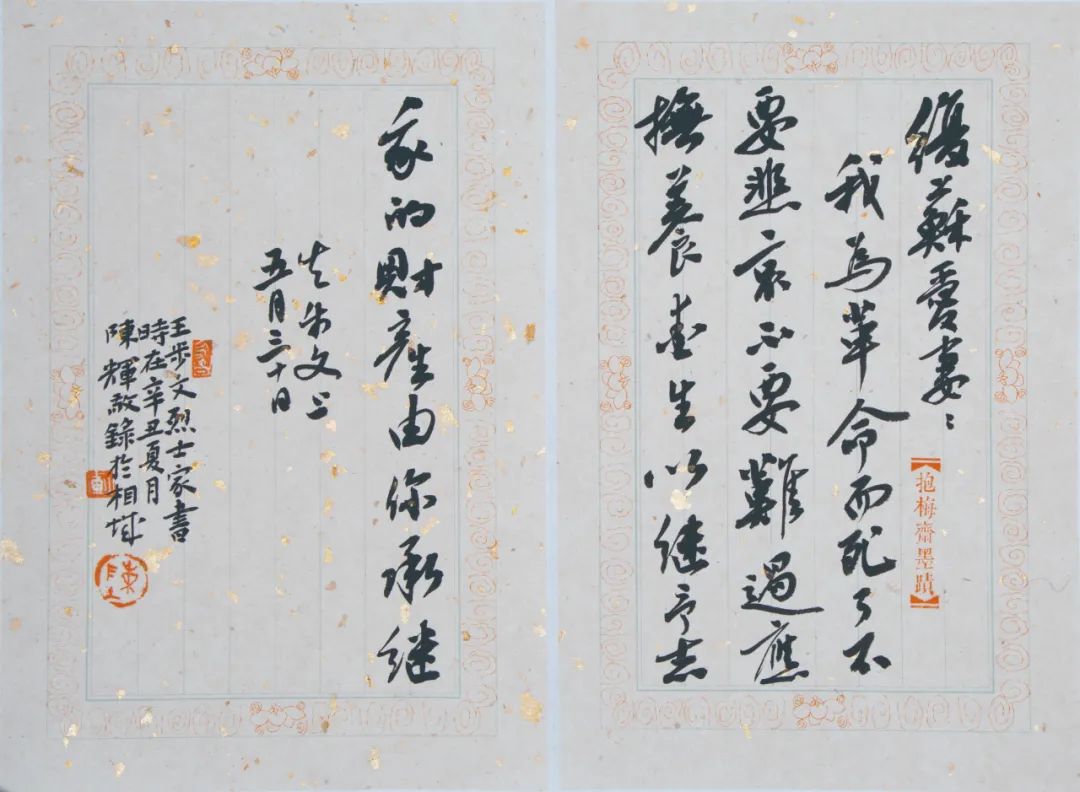 蘇愛妻：
抱梅齋墨蹟
我為革命而死了不
要悲哀不要難過應
撫養生以继予志
家的財產由你承继
夫步文上
五月三十日
王步文烈士家書
時在辛丑夏月
陳輝敬錄於相城
陳